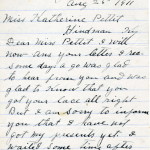 Aug 26 1911
Miss Katherine Pettit
Hindman Ky
Dear Miss Pettit I will
now ans your letter I rec
some days a go was glad
to hear from you and was
glad to know that you
got your lace all right
But I am sorry to inform
you that I have not
got my presents yet. I
waited some time after